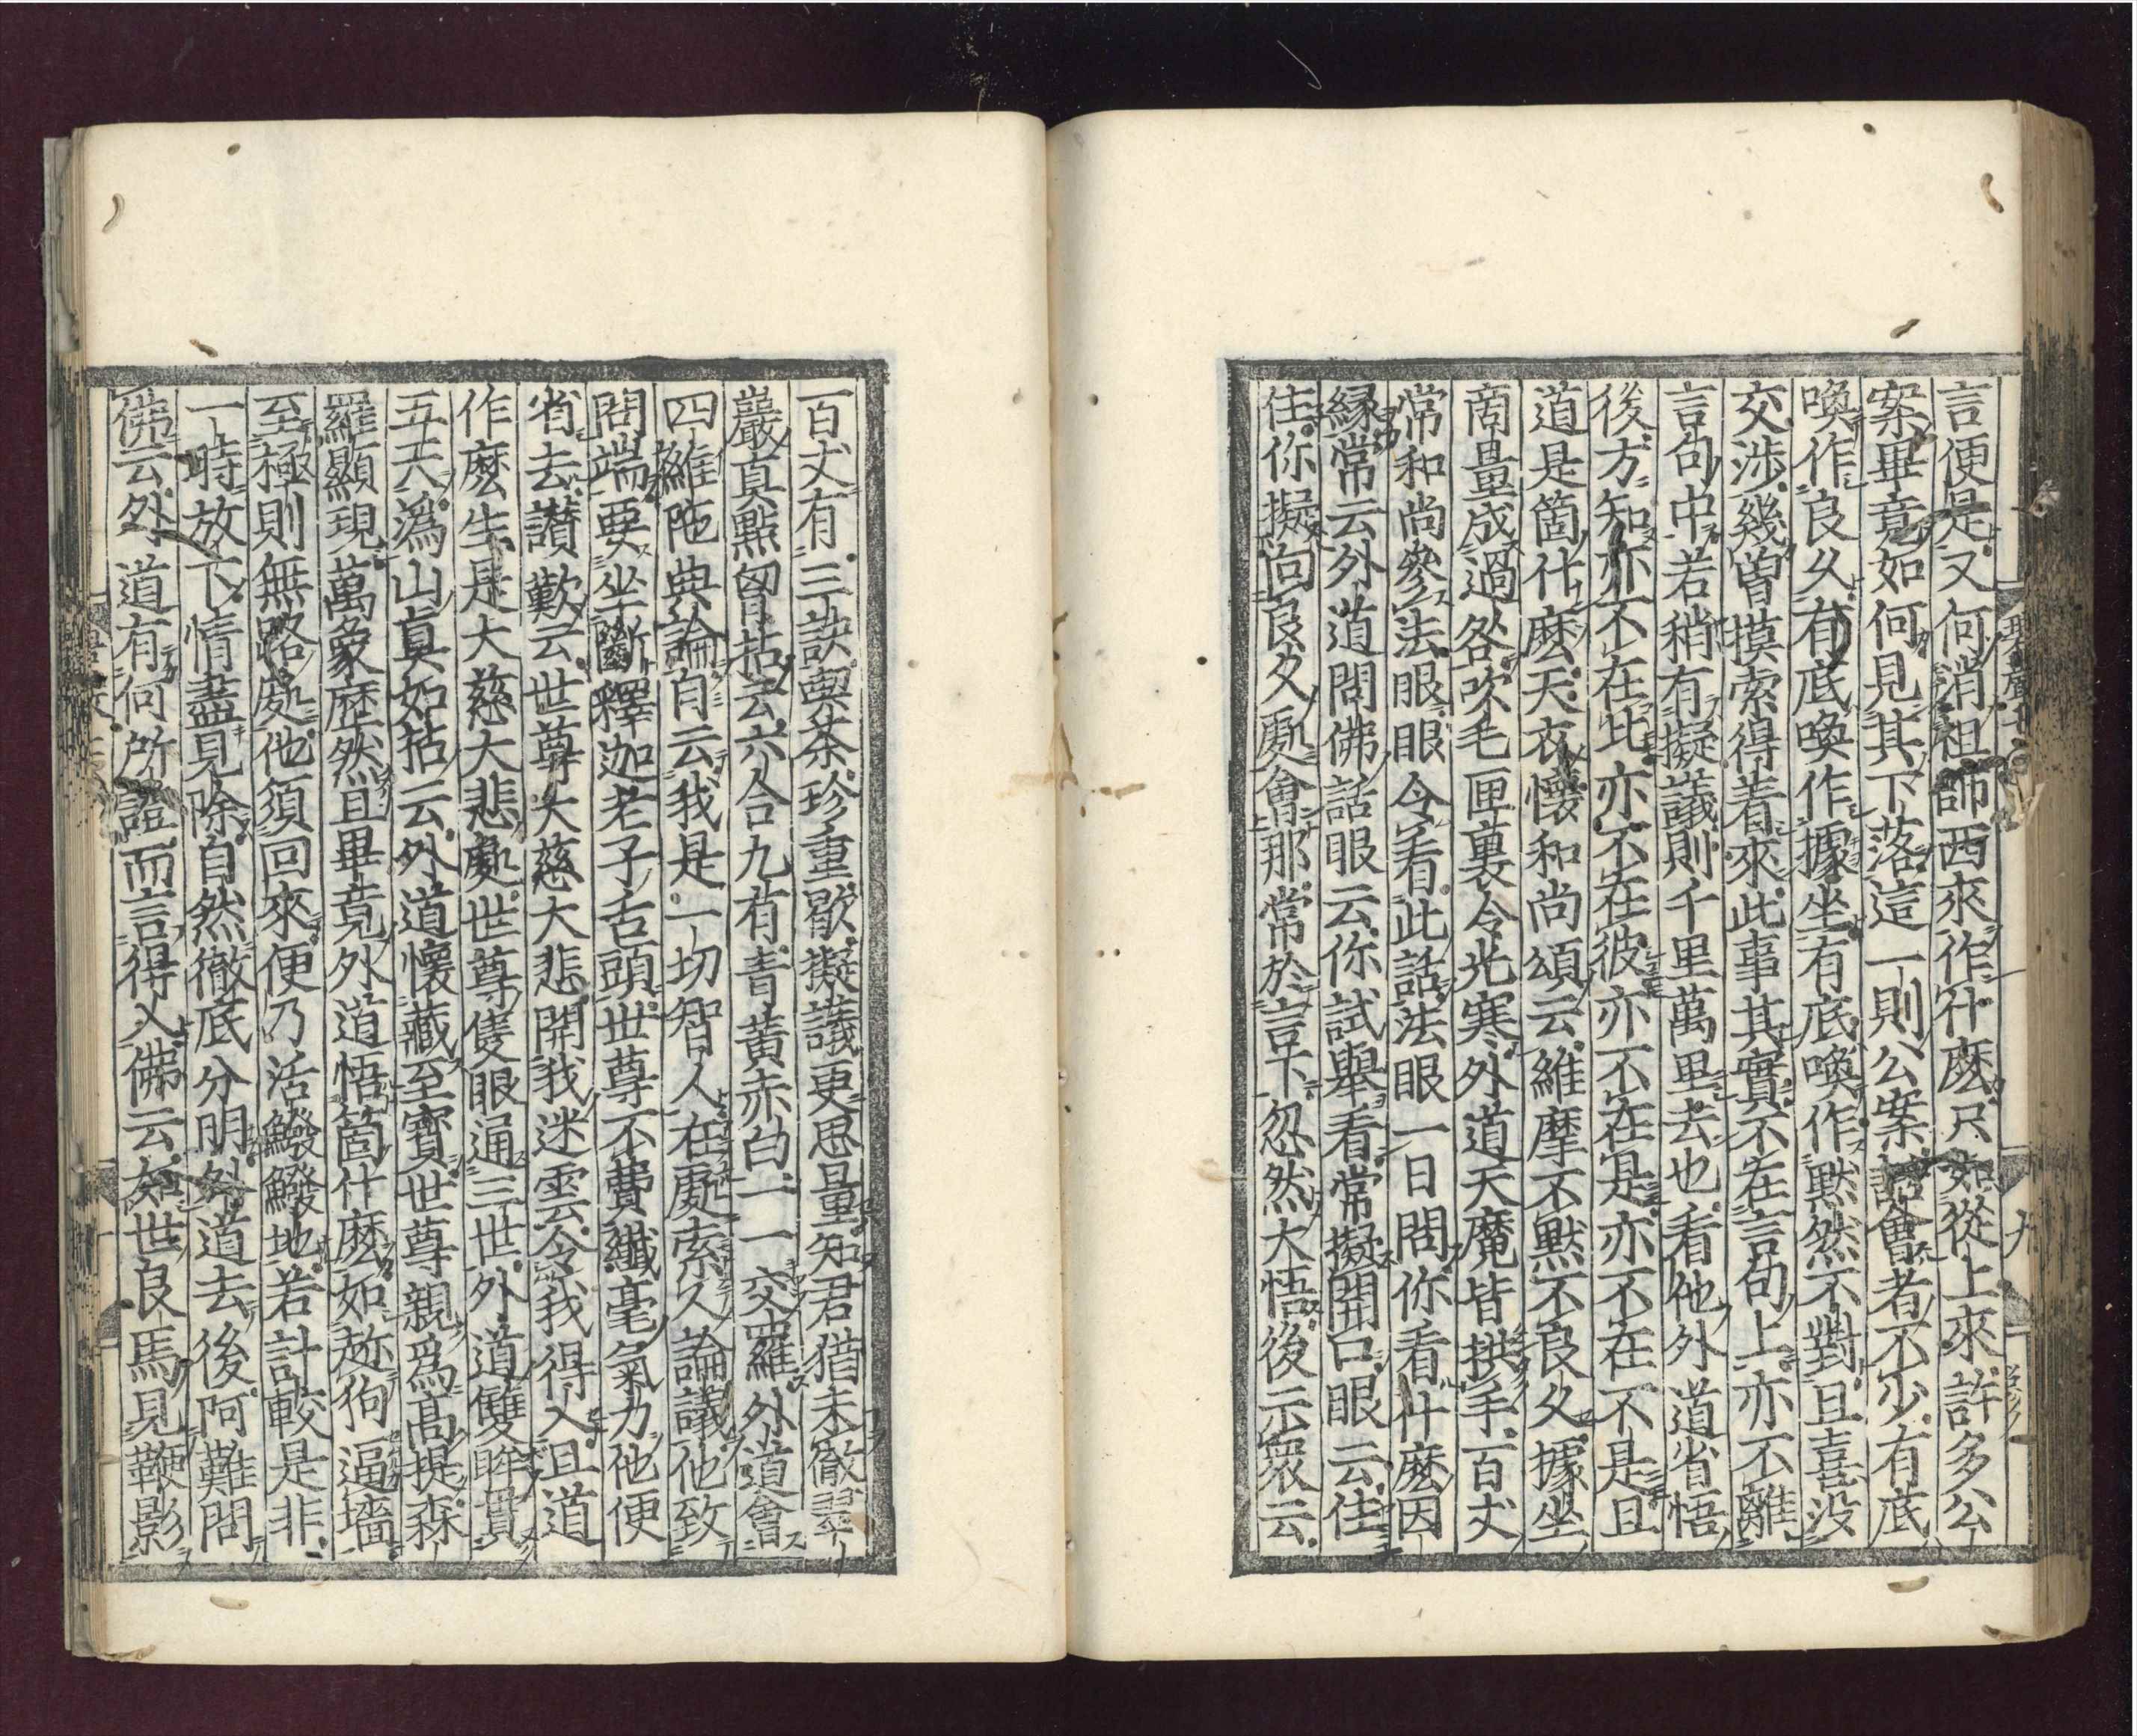 言便是又何消祖師西來作什麽只如從上來許多公
案畢竟如何見其下落這一則公案話會者不少有底
喚作良久有底喚作據坐有底喚作黙然不對且喜没
交涉幾曽摸索得着來此事其實不在言句上亦不離
言句中若稍有擬議則千里萬里去也看他外道省悟
後方知亦不在此亦不在彼亦不在是亦不在不是且
道是箇什麽天衣懐和尚頌云維摩不黙不良久據坐
商量成過咎吹毛匣裏冷光寒外道天魔皆拱手百丈
常和尚參法眼眼令看此話法眼一日問你看什麽因
縁常云外道問佛話眼云你試舉看常擬開口眼云住
住你擬向良久處會那常於言下忽然大悟後示衆云
百丈有三訣喫茶珍重歇擬議更思量知君猶未徹翠
巖真點胷拈云六合九有青黄赤白一一交羅外道會
四維陁典論自云我是一切智人在處索人論議他致
問端要坐斷釋迦老子舌頭世尊不費纖毫氣力他便
省去讃歎云世尊大慈大悲開我迷雲令我得入且道
作麽生是大慈大悲處世尊隻眼通三世外道雙眸貫
五天潙山真如拈云外道懷藏至寳世尊親爲髙提森
羅顯現萬象歴然且畢竟外道悟箇什麽如趂狗逼墻
至極則無路處他須回來便乃活鱍鱍地若計較是非
一時放下情盡見除自然徹底分明外道去後阿難問
佛云外道有何所證而言得入佛云如世良馬見鞭影